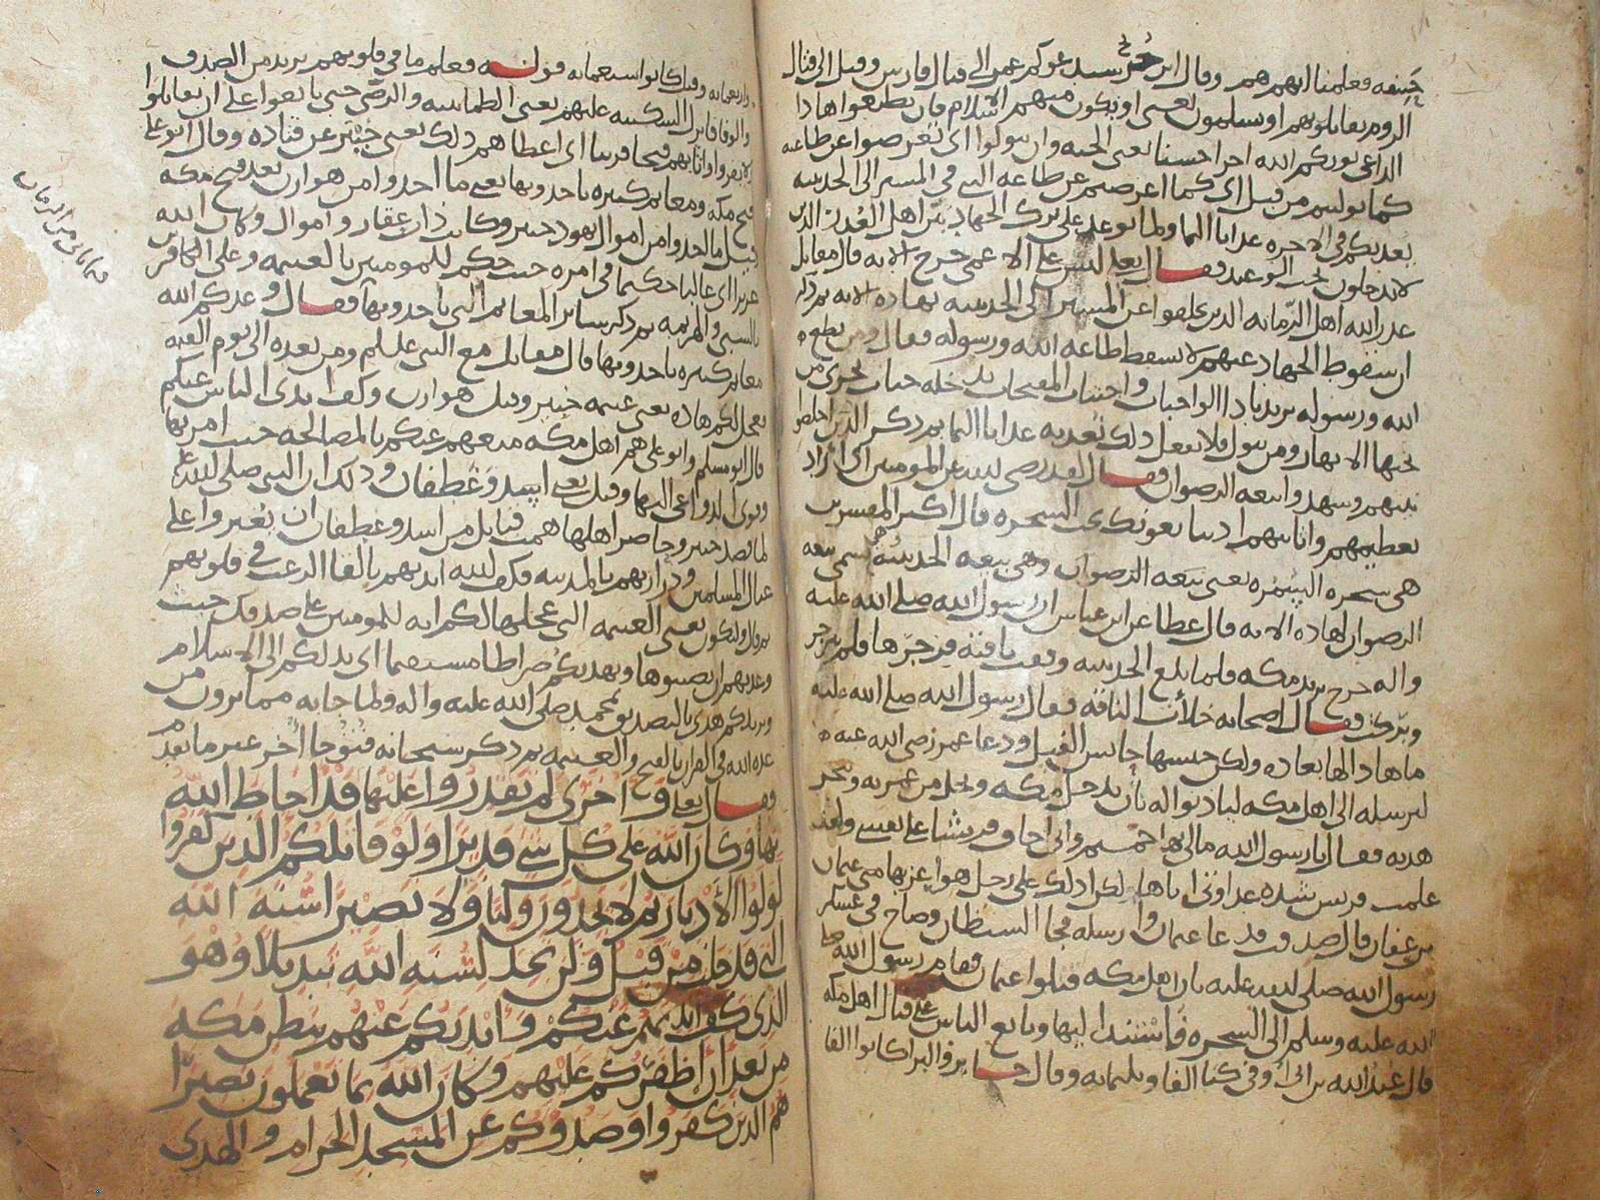 حنيفه فعلمنا انهم هم وقال ابن جريج سيدعوكم عمر الى قتال فارس وقيل الى قتال
الروم تقاتلونهم او يسلمون يعنى او يكون منهم الاسلام فان تطيعوا هاذا
الداعى يوتكم الله اجرا حسنا يعنى الجنه وان تتولوا اى تعرضوا عن طاعته
كما توليتم من قبل اى كما اعرضتم عن طاعه النبى فى المسير الى الحديبيه
يعذبكم فى الاخره عذابا اليما ولما توعد على ترك الجهاد بين اهل العذر الذين
لا يدخلون تحت الوعيد فقال تعالى ليس على الاعمى حرج الايه قال مقاتل
عذر الله اهل الزمانه الذين تخلفوا عن المسير الى الحديبيه بهاذه الايه ثم ذكر
ان سقوط الجهاد عنهم لا يسقط طاعه الله ورسوله فقال ومن يطع
الله ورسوله يريد باداء الواجبات واجتناب المقبحات يدخله جنات تجرى من
تحتها الانهار ومن يتول فلا يفعل ذلك نعذبه عذابا اليما ثم ذكر الذين اخلصوا
نيتهم وشهدوا بيعه الرضوان فقال لقد رضى الله عن المومنين اى اراد
تعظيمهم واثابتهم اذ يبايعونك تحت الشجره قال اكثر المفسرين
هى شجره السمره يعنى بيعه الرضوان وهى بيعه الحديبيه تسمى بيعه
الرضوان لهاذه الايه قال عطا عن ابن عباس ان رسول الله صلى الله عليه
واله خرج يريد مكه فلما بلغ الحديبيه وقفت ناقته فزجرها فلم تنزجر
وبركت فقال اصحابه خلأت الناقه فقال رسول الله صلى الله عليه
ما هاذا لها بعاده ولكن حبسها حابس الفيل ودعا عمر رضى الله عنه
ليرسله الى اهل مكه لياذنوا له بأن يدخل مكه ويحل من عمرته وينحر
هديه فقال يا رسول الله مالى بها حميم وانى اخاف قريشا على نفسى ولقد
علمت قريش شده عداوتى اياها ولكن ادلك على رجل هو اعز بها منى عثمان
بن عفان قال صدقت فدعا عثمان وارسله فجا الشيطان وصاح فى عسكر
رسول الله صلى الله عليه بان اهل مكه قتلوا عثمان فقام رسول الله صلى
الله عليه وسلم الى الشجره فاستند اليها وبايع الناس على قتال اهل مكه
قال عبد الله بن ابى اوفى كنا الفا وثلثمايه وقال جابر والبرا كانوا الفا
واربعمايه وقيل كانوا سبعمايه قوله فعلم ما فى قلوبهم يريد من الصدق
والوفا فانزل السكينه عليهم يعنى الطمانينه والرضى حتى بايعوا على ان يقاتلوا
ولا يفروا واثابهم فتحا قريبا اى اعطاهم ذلك يعنى خيبر عن قتاده وقال ابو على
فتح مكه ومغانم كثيره ياخذونها يعنى ما اخذوا من هوازن بعد فتح مكه
وقيل ما اخذوا من اموال اليهود خيبر وكانت ذات عقار واموال وكان الله
عزيزا اى غالبا حكيما فى امره حيث حكم للمومنين بالغنيمه وعلى الكافرين
بالسبى والهزيمه ثم ذكر ساير المغانم التى ياخذونها فقال وعدكم الله
مغانم كثيره تاخذونها قال مقاتل مع النبى عليلم ومن بعده الى يوم القيمه
فعجل لكم هاذه يعنى غنيمه خيبر وقيل هوازن وكف ايدى الناس عنكم
قال ابو مسلم وابو على هم اهل مكه منعهم عنكم بالمصالحه حيث امر بها
وقوى الدواعى اليها وقيل يعنى اسد وغطفان وذلك ان النبى صلى الله عليه
لما قصد خيبر وحاصر اهلها همت قبايل من اسد وغطفان ان يغيروا على
عيال المسلمين وذراريهم بالمدينه فكف الله ايديهم بالقا الرعب فى قلوبهم
ثم قال ولتكون يعنى الغنيمه التى عجلها لكم ايه للمومنين على صدقك حيث
وعدتهم ان يصيبوها ويهديكم صراطا مستقيما اى يدلكم الى الاسلام
ويزيدكم هدى بالتصديق لمحمد صلى الله عليه واله ولما جا به مما يرون من
عده الله فى القران بالفتح والغنيمه ثم ذكر سبحانه فتوحا اخر غير ما تقدم
فقال تعالى وأخرى لم تقدروا عليها قد احاط الله
بها وكان الله على كل شى قديرا ولو قاتلكم الذين كفروا
لولوا الأدبار ثم لا يجدون وليا ولا نصيرا سنه الله
التى قد خلت من قبل ولن تجد لسنه الله تبديلا وهو
الذى كف ايديهم عنكم وايديكم عنهم ببطن مكه
من بعد أن اظفركم عليهم وكان الله بما تعملون بصيرا
هم الذين كفروا وصدوكم عن المسجد الحرام والهدى